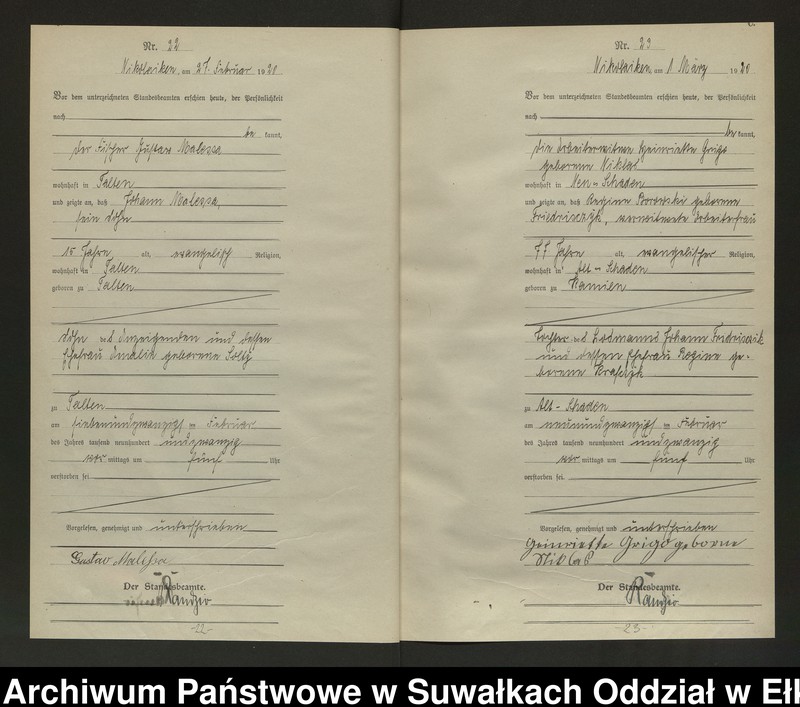 Nr. 22
Nikolaiken, am 27. Februar 1920
Vor dem unterzeichneten Standesbeamten erschien heute, der Persönlichkeit
nach
be kannt,
der Fischer Gustav Malessa
wohnhaft in Talten
und zeigte an, daß Johann Malessa,
sein Sohn
15 Jahre alt, evangelisch Religion,
wohnhaft in Talten
geboren zu Talten
Sohn des Anzeigenden und dessen
Ehefrau Amalie geborene
zu Talten
am siebenundzwanzigs ten Februar
des Jahres tausend neunhundert undzwanzig
vor mittags um fünf Uhr
verstorben sei.
Vorgelesen, genehmigt und unterschrieben
Gustav Malessa
Der Standesbeamte.
-22-
Nr. 23
Nikolaiken am 1 März 1920
Vor dem unterzeichneten Standesbeamten erschien heute, der Persönlichkeit
nach
be kannt,
die Arbeiterwitwe Heinriette Grigo
geborene Niklas
wohnhaft in Neu-Schaden
und zeigte an, daß Regine Borowski geborene
verwitwete Arbeiterfrau
77 Jahre alt, evangelischer Religion,
wohnhaft in Alt-Schaden
geboren zu Kamien
Tochter des Johann
und dessen Ehefrau Regine ge-
borene
zu Alt-Schaden
am neunundzwanzigs ten Februar
des Jahres tausend neunhundert undzwanzig
vor mittags um fünf Uhr
verstorben sei.
Vorgelesen, genehmigt und unterschrieben
Heinriette Grigo geborne
Niklas
Der Standesbeamte.
-23-
Archiwum Państwowe w Suwałkach Oddział w Ełk